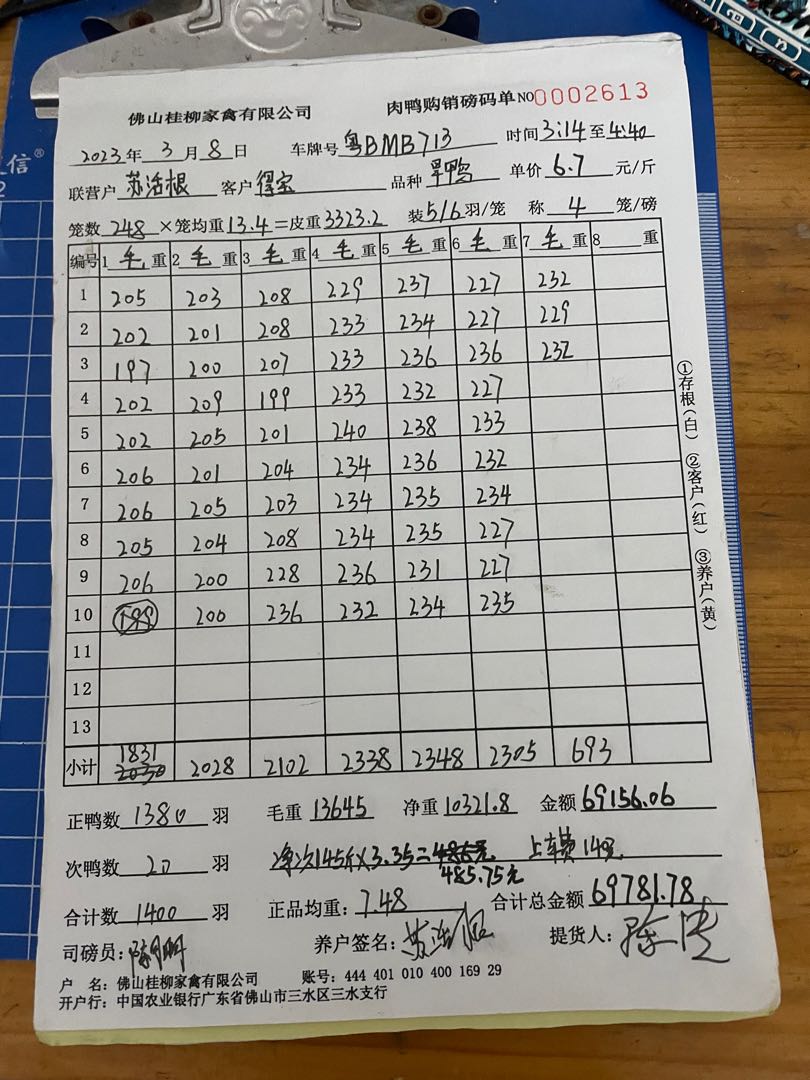 信®
佛山桂柳家禽有限公司 肉鸭购销磅码单 NO0002613
2023年 3 月 8 日 车牌号 粤BMB713 时间 3:14 至 4:40
联营户 苏活根 客户 得宝 品种 旱鸭 单价 6.7 元/斤
笼数 248 ×笼均重 13.4 =皮重 3323.2 装 5/6 羽/笼 称 4 笼/磅
编号 1 毛 重 2 毛 重 3 毛 重 4 毛 重 5 毛 重 6 毛 重 7 毛 重 8 重
1 205 203 208 229 237 227 232
2 202 201 208 233 234 227 229
3 197 200 207 233 236 236 232
4 202 209 199 233 232 227
5 202 205 201 240 238 233
6 206 201 204 234 236 232
7 206 205 203 234 235 234
8 205 204 208 234 235 227
9 206 200 228 236 231 227
10 199 200 236 232 234 235
11
12
13
小计 1831 2030 2028 2102 2338 2348 2305 693
正鸭数 1380 羽 毛重 13645 净重 10321.8 金额 69156.06
次鸭数 20 羽 净次145斤×3.35= 485.75元 上车费140元
合计数 1400 羽 正品均重: 7.48 合计总金额 69781.78
司磅员: 养户签名: 苏活根 提货人:
户 名: 佛山桂柳家禽有限公司 账号: 444 401 010 400 169 29
开户行: 中国农业银行广东省佛山市三水区三水支行
①存根(白) ②客户(红) ③养户(黄)